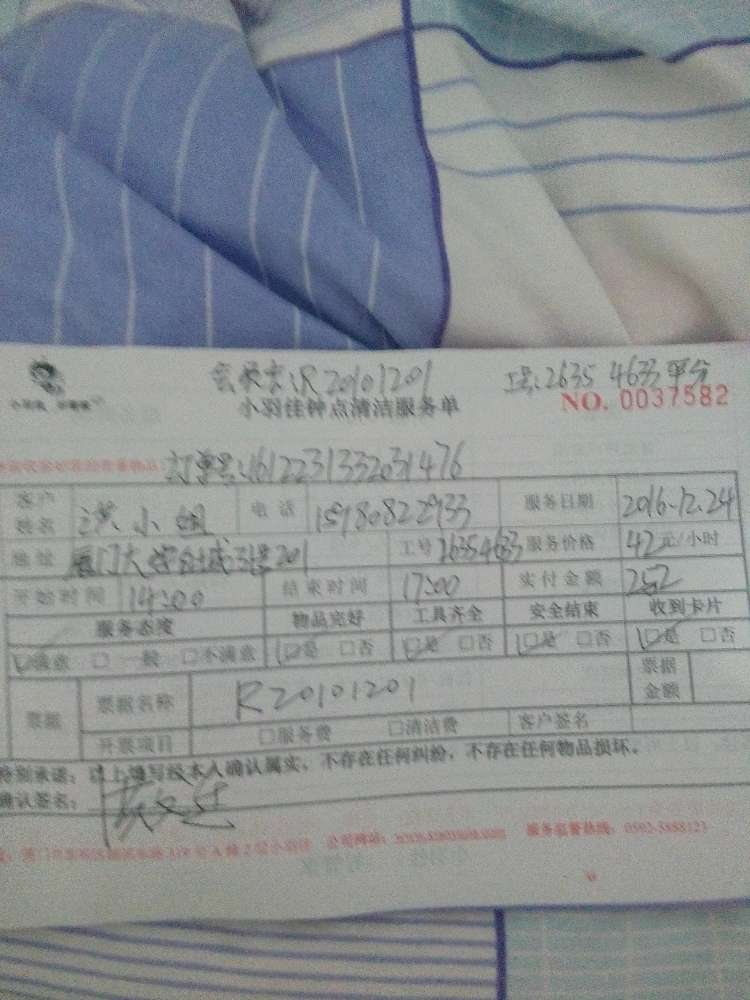 R20101201 工号:2635 4633 平分
小羽佳钟点清洁服务单 NO. 0037582
订单号:1612231332031476
客户姓名 洪小姐 电话 15980822933 服务日期 2016.12.24
地址 厦门大 201 工号 26354633 服务价格 42元/小时
开始时间 14:00 结束时间 17:00 实付金额 252
服务态度 物品完好 工具齐全 安全结束 收到卡片
☑满意 □一般 □不满意 ☑是 □否 ☑是 □否 ☑是 □否 ☑是 □否
票据 票据名称 R20101201 票据金额
开票项目 □服务费 □清洁费 客户签名
特别承诺:以上填写经本人确认属实,不存在任何纠纷,不存在任何物品损坏。
确认签名:
公司网站: 服务监督热线:0592-5888123